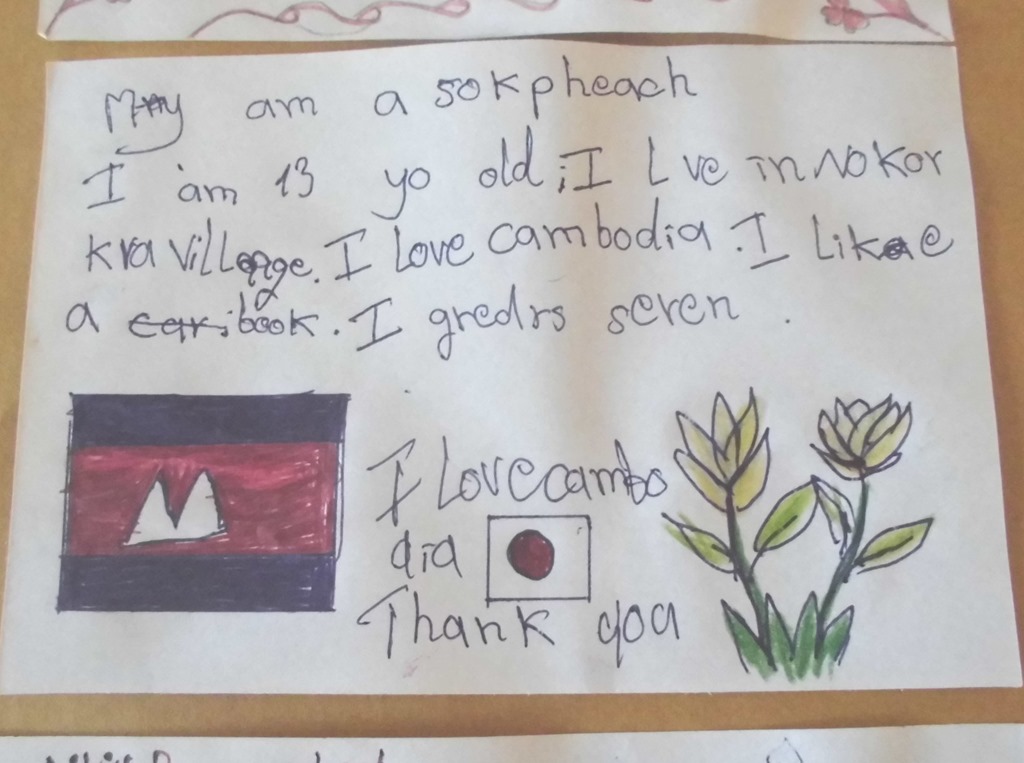 My am a sokpheach
I am 13 yo old, I Lve in Nokor
kra Villange. I love cambodia. I Like
a book. I gredrs seren.
I Love cambo
dia
Thank you